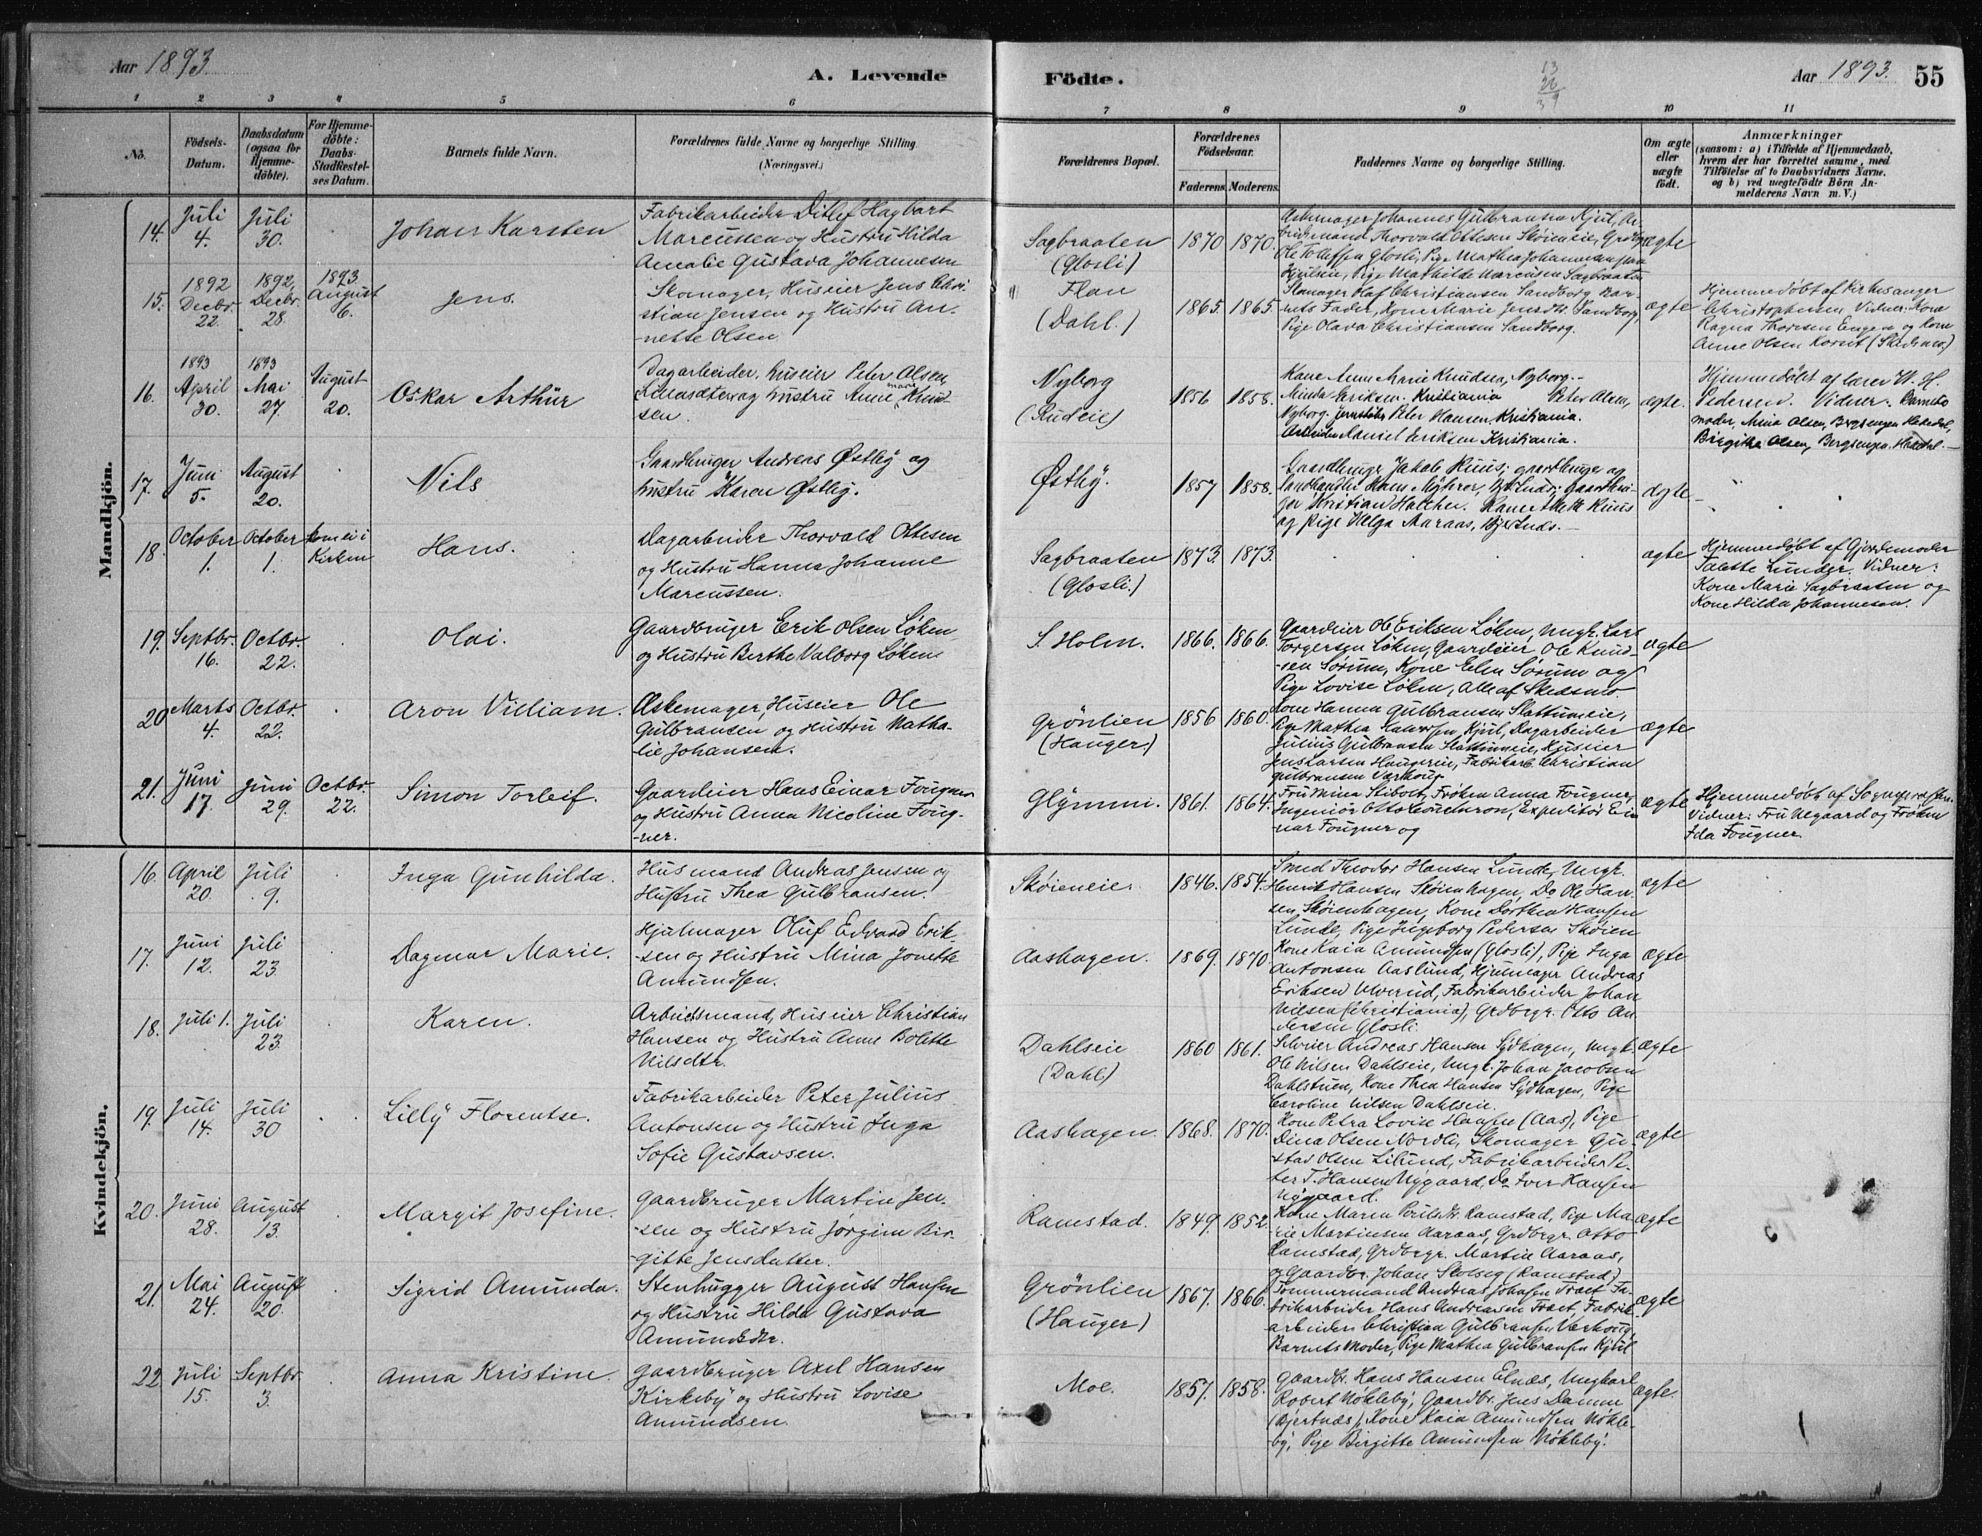 Aar 1893.
A. Levende
Födte.
13
26
39
Aar 1893.
55
1 2 3 4 5 6 7 8 9 10 11
No.
Födsels-
Datum.
Daabsdatum
(ogsaa for
Hjemme-
döbte).
For Hjemme-
döbte:
Daabs-
Stadfæstel-
ses Datum.
Barnets fulde Navn.
Forældrenes fulde Navne og borgerlige Stilling
(Næringsvei.)
Forældrenes Bopæl.
Forældrenes
Födselsaar.
Faderens. Moderens.
Faddernes Navne og borgerlige Stilling.
Om ægte
eller
uægte
födt.
Anmærkninger
(saasom: a) i Tilfælde af Hjemmedaab,
hvem der har forrettet samme, med
Tilföielse af to Daabsvidners Navne.
og b) ved uægtefödte Börn An-
melderens Navn m. V.)
Mandkjön.
14. Juli
4.
Juli
30.
Johan Karsten
Fabrikarbeider Ditlef Hagbart
Marcussen og Hustru Hilda
Amalie Gustava Johannesen
Sagbraaten
(Glosli)
1870 1870.
Askemager Johannes Gulbransen Kjul, Ar-
beidsmand Thorvald Ottesen Skøieneie,
Ole Tollefsen Glosli, Pige Mathea Johannesen
Pige Mathilde Marcusen Sagbraaten
ægte
15. 1892
Decbr.
22.
1892,
Decbr.
28.
1893
August
6.
Jens.
Skomager, Huseier Jens Chri-
stian Jensen og Hustru An-
nette Olsen
Flan
(Dahl.)
1865. 1865.
Skomager Olaf Christiansen Sandborg Bar-
nets Fader, Kone Marie Jensdtr. Sandborg,
Pige Olava Christiansen Sandborg.
ægte
Hjemmedøbt af Kirkesanger
Christophersen Vidner: Kone
Ragna Thoresen Engen og Kone
Anne Olsen Korset (Skedsmo.)
16. 1893
April
30.
1893
Mai
27.
August
20.
Oskar Arthur
Dagarbeider, huseier Peter Olsen
og hustru Anne Marie Knud-
sen.
Nyborg
(Rudeie)
1856 1858.
Kone Anne Marie Knudsen, Nyborg.
Minda Eriksen. Kristiania Peter Olsen,
Nyborg. Peter Hansen, Kristiania.
Arbeider Daniel Eriksen Kristiania.
ægte.
Hjemmedøbt af lærer W. H.
Pedersen. Vidner: Barnets
moder, Mina Olsen, Bergsengen Hakedal,
Birgitte Olsen, Bergsengen Hakedal.
17. Juni
5.
August
20.
Nils
Gaardbruger Andreas Østby og
hustru Karen Østby.
Østby.
1857 1858.
Gaardbruger Jakob Ruus; gaardbruger og
Landhandler
Kristian Holther. Kone Ruus
og pige Helga Maraas,
ægte
18. October
1.
October
1.
Kirken
Hans.
Dagarbeider Thorvald Ottesen
og Hustru Hanna Johanne
Marcussen.
Sagbraaten
(Glosli.)
1873. 1873.
ægte
Hjemmedøbt af Gjordemoder
Tolette Lunder. Vidner:
Kone Marie Sagbraaten og
Kone Hilda Johannesen.
19. Septbr.
16.
Octbr.
22.
Olai.
Gaardbruger Erik Olsen Løken
og Hustru Berthe Valborg Løken
S. Holm.
1866. 1866.
Gaardeier Ole Eriksen Løken, Ungk. Lars
Torgersen Løken, Gaardeier Ole Knud-
-sen Sørum, Kone Elen Sørum og
Pige Lovise Løken, Alle af Skedsmo
ægte
20 Marts
4.
Octbr.
22.
Aron Villiam.
Askemager, Huseier Ole
Gulbransen og Hustru Matha-
lie Johansen.
Grönlien
(Hauger.)
1856 1860.
Kone Hanna Gulbransen Slattumeie,
Pige Mathea Kjul, Dagarbeider
Julius Gulbransen Slattumeie, Huseier
Jens Larsen Haugereie, Fabrikarb. Christian
Gulbransen Varhoug
ægte
21. Juni
17.
Juni
29.
Octbr.
22.
Simon Torleif.
Gaardeier Hans Einar Fougner
og Hustru Anna Nicoline Foug-
-ner.
Glymmi.
1861. 1864.
Fru Mina Stibolt, Frøken Anna Fougner,
Ingeniør Otto Leonchron, Expeditør Ei-
nar Fougner og
ægte
Hjemmedøbt af Sognepræsten.
Vidner: Fru Aegaard og Frøken
Ida Fougner.
Kvindekjön.
16. April
20.
Juli
9.
Inga Gunhilda.
Husmand Andreas Jensen og
Hustru Thea Gulbransen.
Skøieneie.
1846. 1854.
Smed Theodor Hansen Lunde, Ungk.
Henrik Hansen Skøienhagen, Do Ole Han-
sen Skøienhagen, Kone Dorthea Hansen
Lunde, Pige Ingeborg Pedersen Skøien
ægte
17. Juni
12.
Juli
23
Dagmar Marie.
Hjulmager Oluf Edvard Erik-
-sen og Hustru Mina Jonette
Amundsen.
Aashagen.
1869. 1870
Kone Kaia Amundsen (Glosli), Pige Inga
Antonsen Aaslund, Hjulmager Andreas
Eriksen Ulverud, Fabrikarbeider Johan
Nilsen (Christiania), Grdbrgr. Otto An-
dersen Glosli.
ægte
18. Juli 1.
Juli
23.
Karen.
Arbeidsmand, Huseier Christian
Hansen og Hustru Anne Bolette
Nilsdtr.
Dahlseie
(Dahl)
1860 1861.
Selveier Andreas Hansen Sydhagen, Ungk.
Ole Nilsen Dahlseie, Ungk. Johan Jacobsen
Dahlstuen, Kone Thea Hansen Sydhagen, Pige
Caroline Nilsen Dahlseie.
ægte
19. Juli
14.
Juli
30
Lilly Florentse.
Fabrikarbeider Peter Julius
Antonsen og Hustru Inga
Sofie Gustavsen.
Aashagen.
1868. 1870.
Kone Petra Lovise Hansen (Aas), Pige
Dina Olsen Nordli, Skomager Gu-
stav Olsen Lilund, Fabrikarbeider Pe-
ter T. Hansen Nygaard, Do Iver Hansen
Nygaard.
ægte
20. Juni
28.
August
13.
Margit Josefine.
Gaardbruger Martin Jen-
-sen og Hustru Jørgine Bir-
-gitte Jensdatter.
Ramstad.
1849. 1852.
Kone Maren Ramstad, Pige Ma-
rie Martinsen Aaraas, Grdbrgr. Otto
Ramstad, Grdbrgr. Martin Aaraas,
og Gaardbr. Johan Skolseg (Ramstad)
ægte
21. Mai
24.
August
20.
Sigrid Amunda.
Stenhugger August Hansen
og Hustru Hilda Gustava
Amundsdtr.
Grönlien
(Hauger)
1867. 1866.
Tømmermand Andreas Johansen Træet, Fa-
brikarbeider Hans Andreasen Træet, Fabrik-
arbeider Christian Gulbransen Varhoug,
Barnets Moder, Pige Mathea Gulbransen Kjul
ægte
22. Juli
15.
Septbr.
3.
Anna Kristine.
Gaardbruger Axel Hansen
Kirkeby og Hustru Lovise
Amundsen.
Moe.
1857. 1858.
Gaardbr. Hans Hansen Elnæs, Ungkarl
Robert Nøkleby, Gaardbr. Jens Damm
(Bjertnæs), Kone Kaia Amundsen Nøkle-
by, Pige Birgitte Amundsen Nøkleby.
ægte.